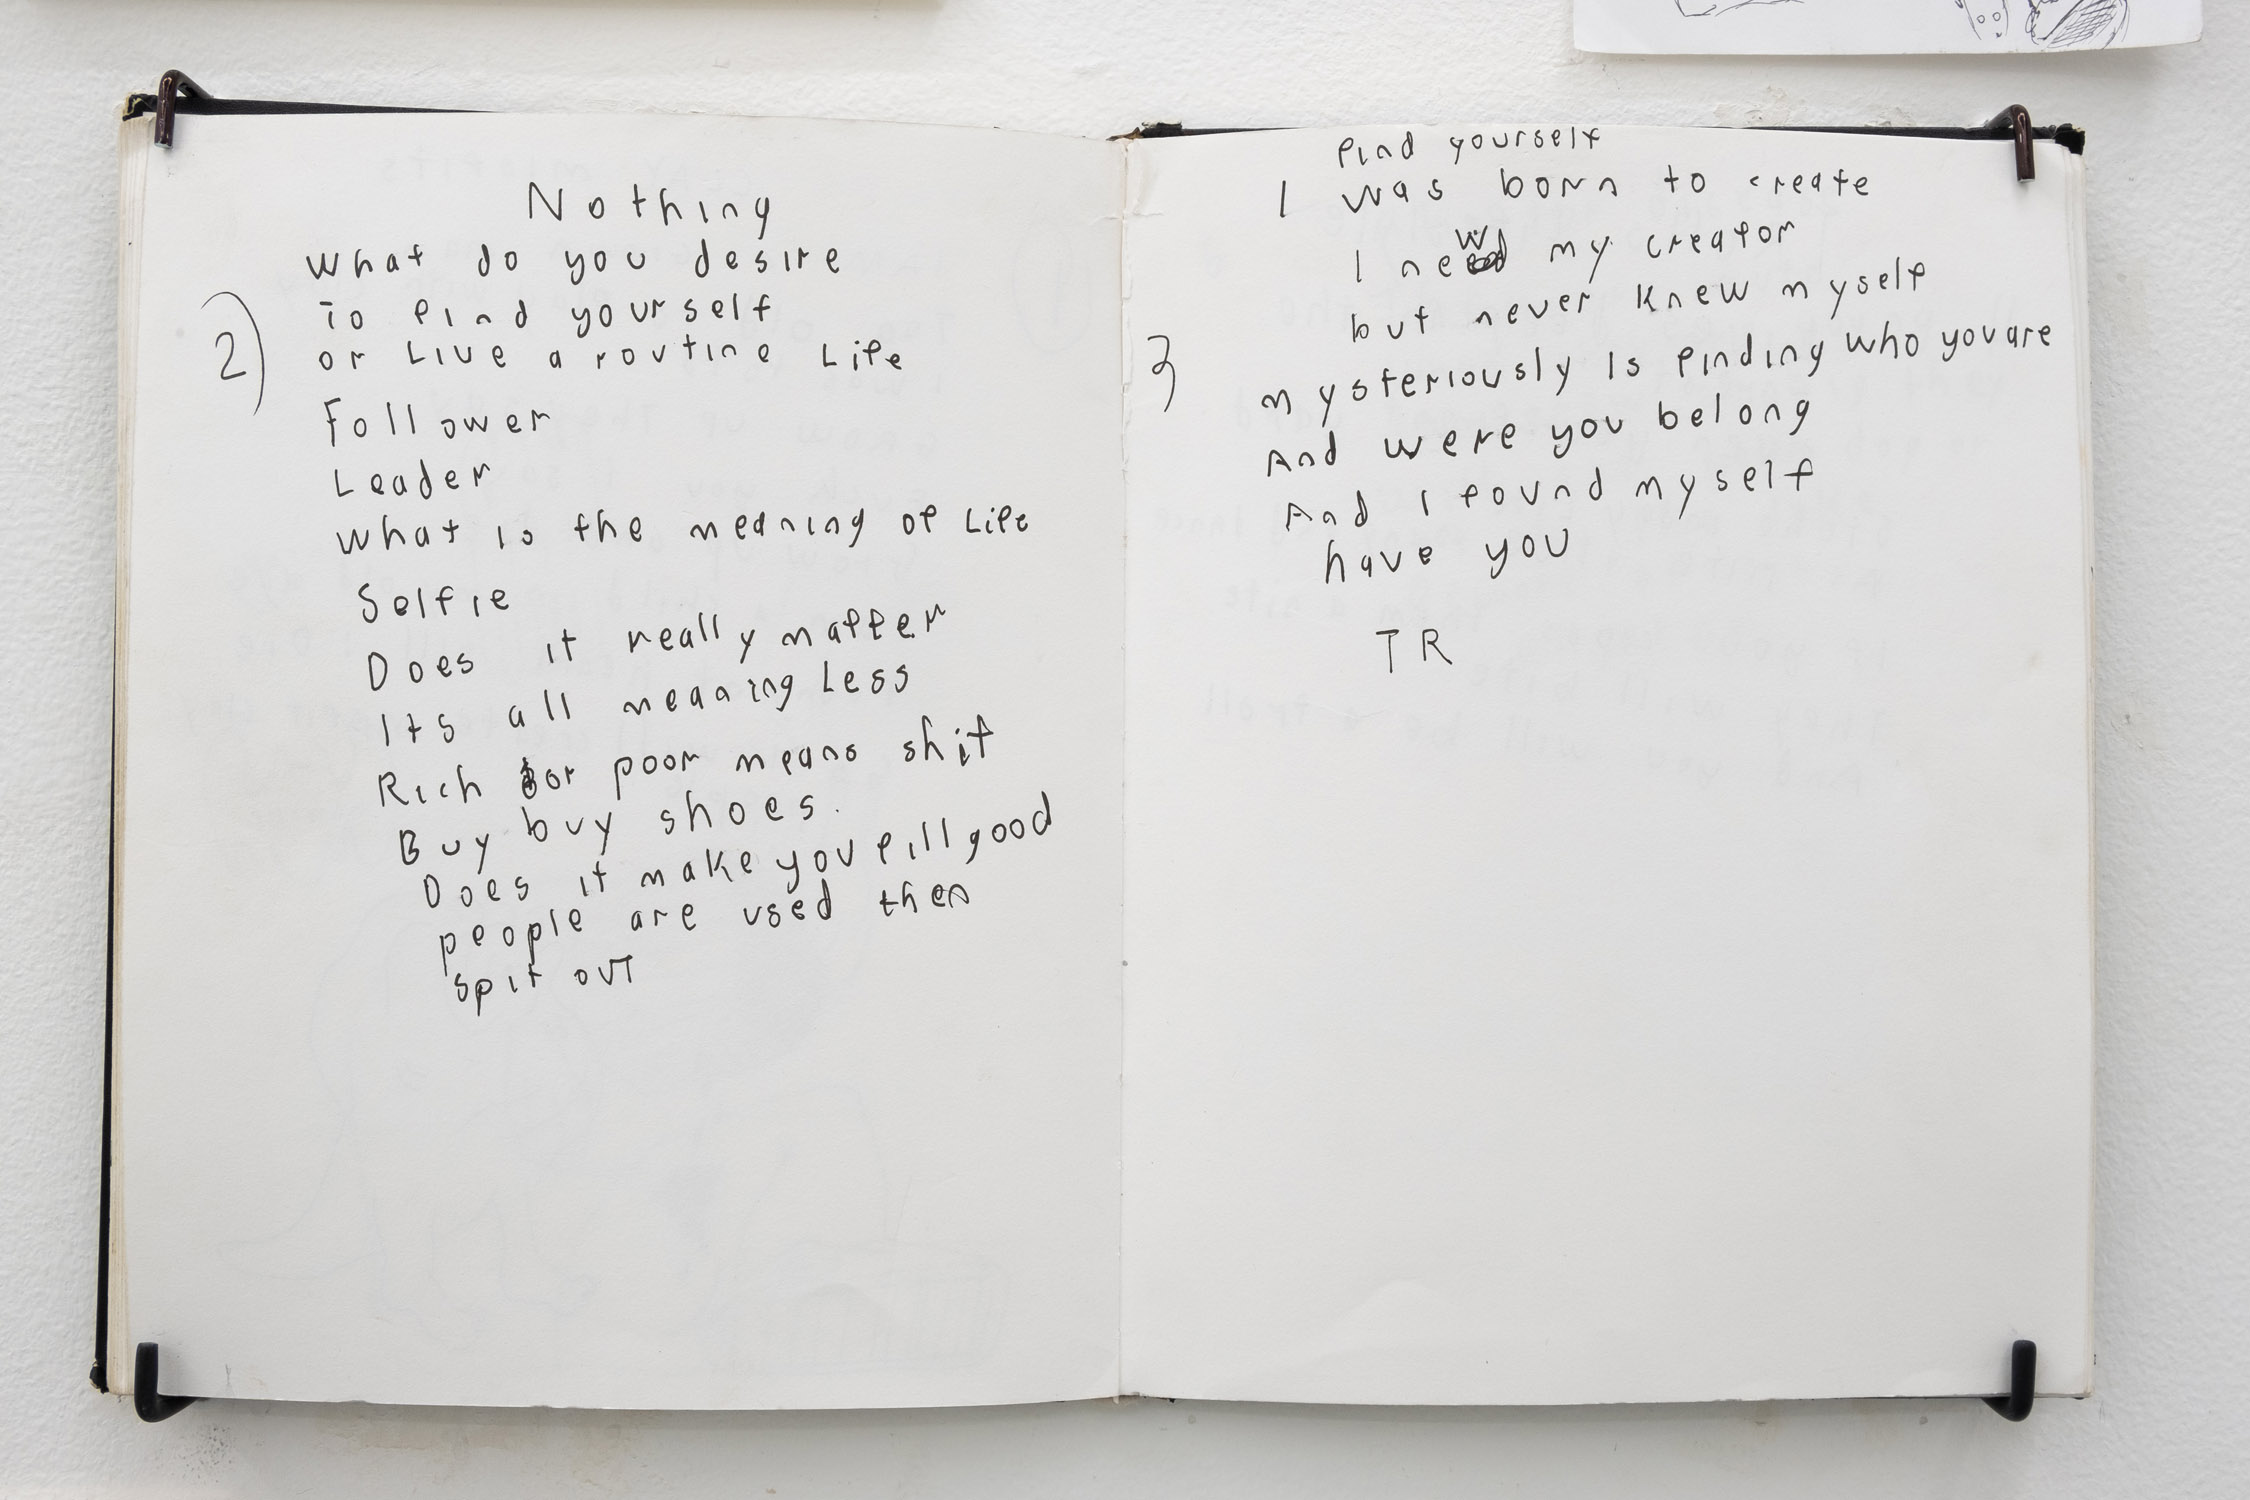 2)
Nothing
What do you desire
To find yourself
or Live a routine Life
Follower
Leader
What is the meaning of Life
Selfie
Does it really matter
Its all meaning Less
Rich or poor means shit
Buy buy shoes.
Does it make you fill good
people are used then
spit out
3
find yourself
I was born to create
I new my creator
but never knew myself
mysteriously is finding who you are
And were you belong
And I found myself
have you
TR